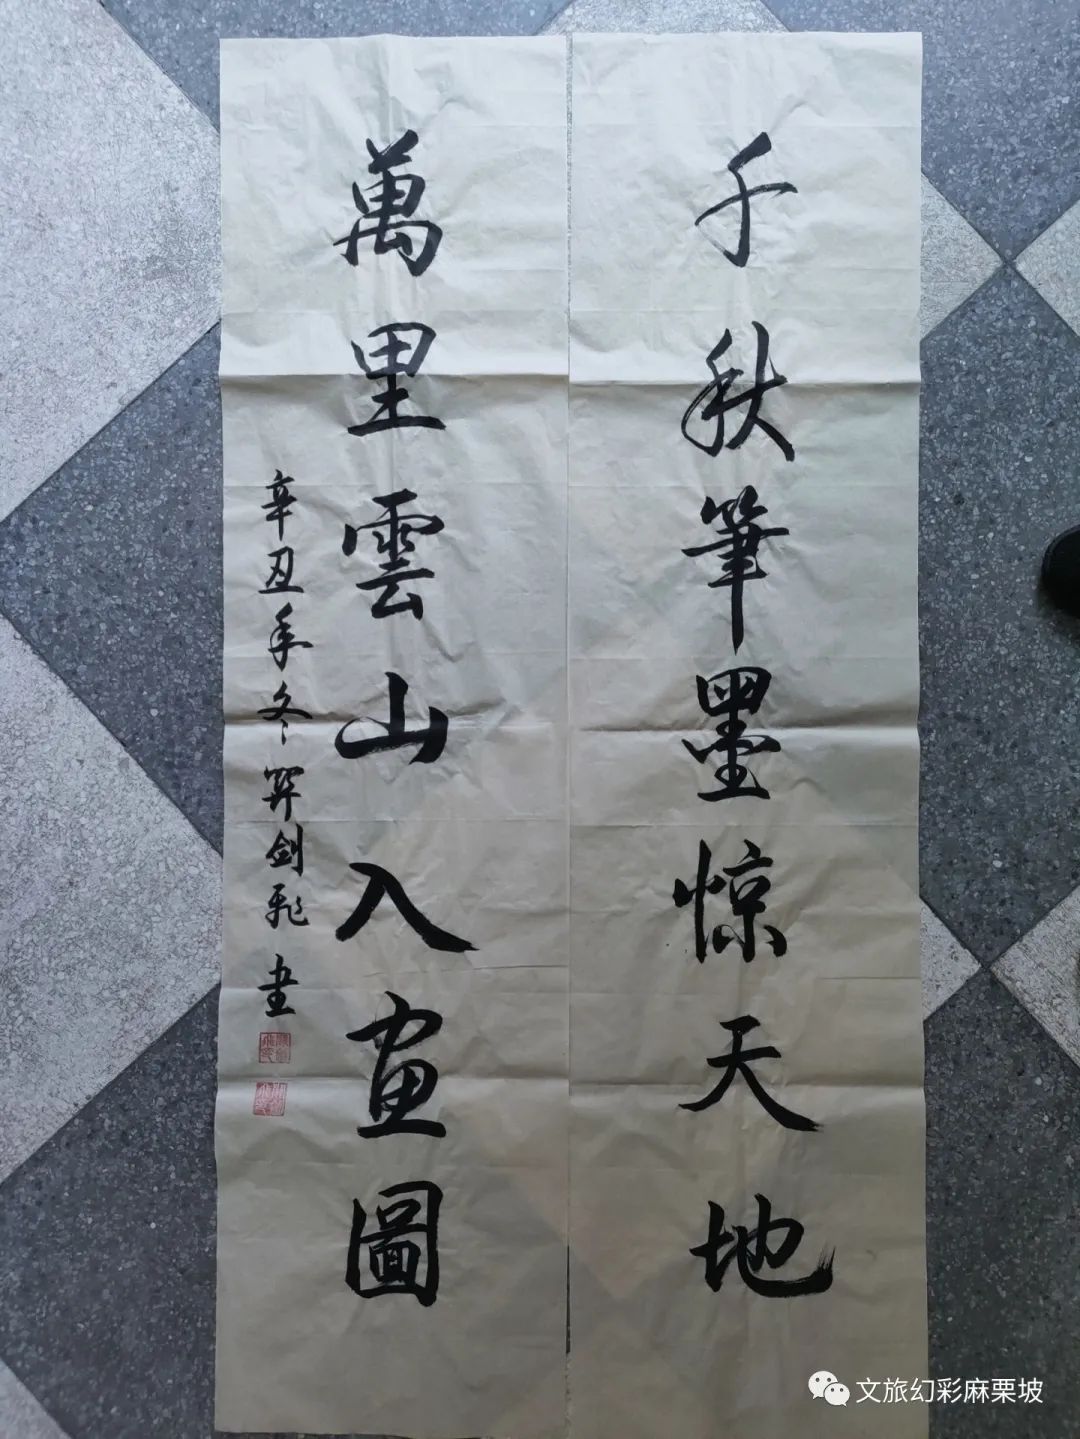 千秋筆墨惊天地
萬里雲山入画圖
辛丑年冬 剑飛 书
文旅幻彩麻栗坡